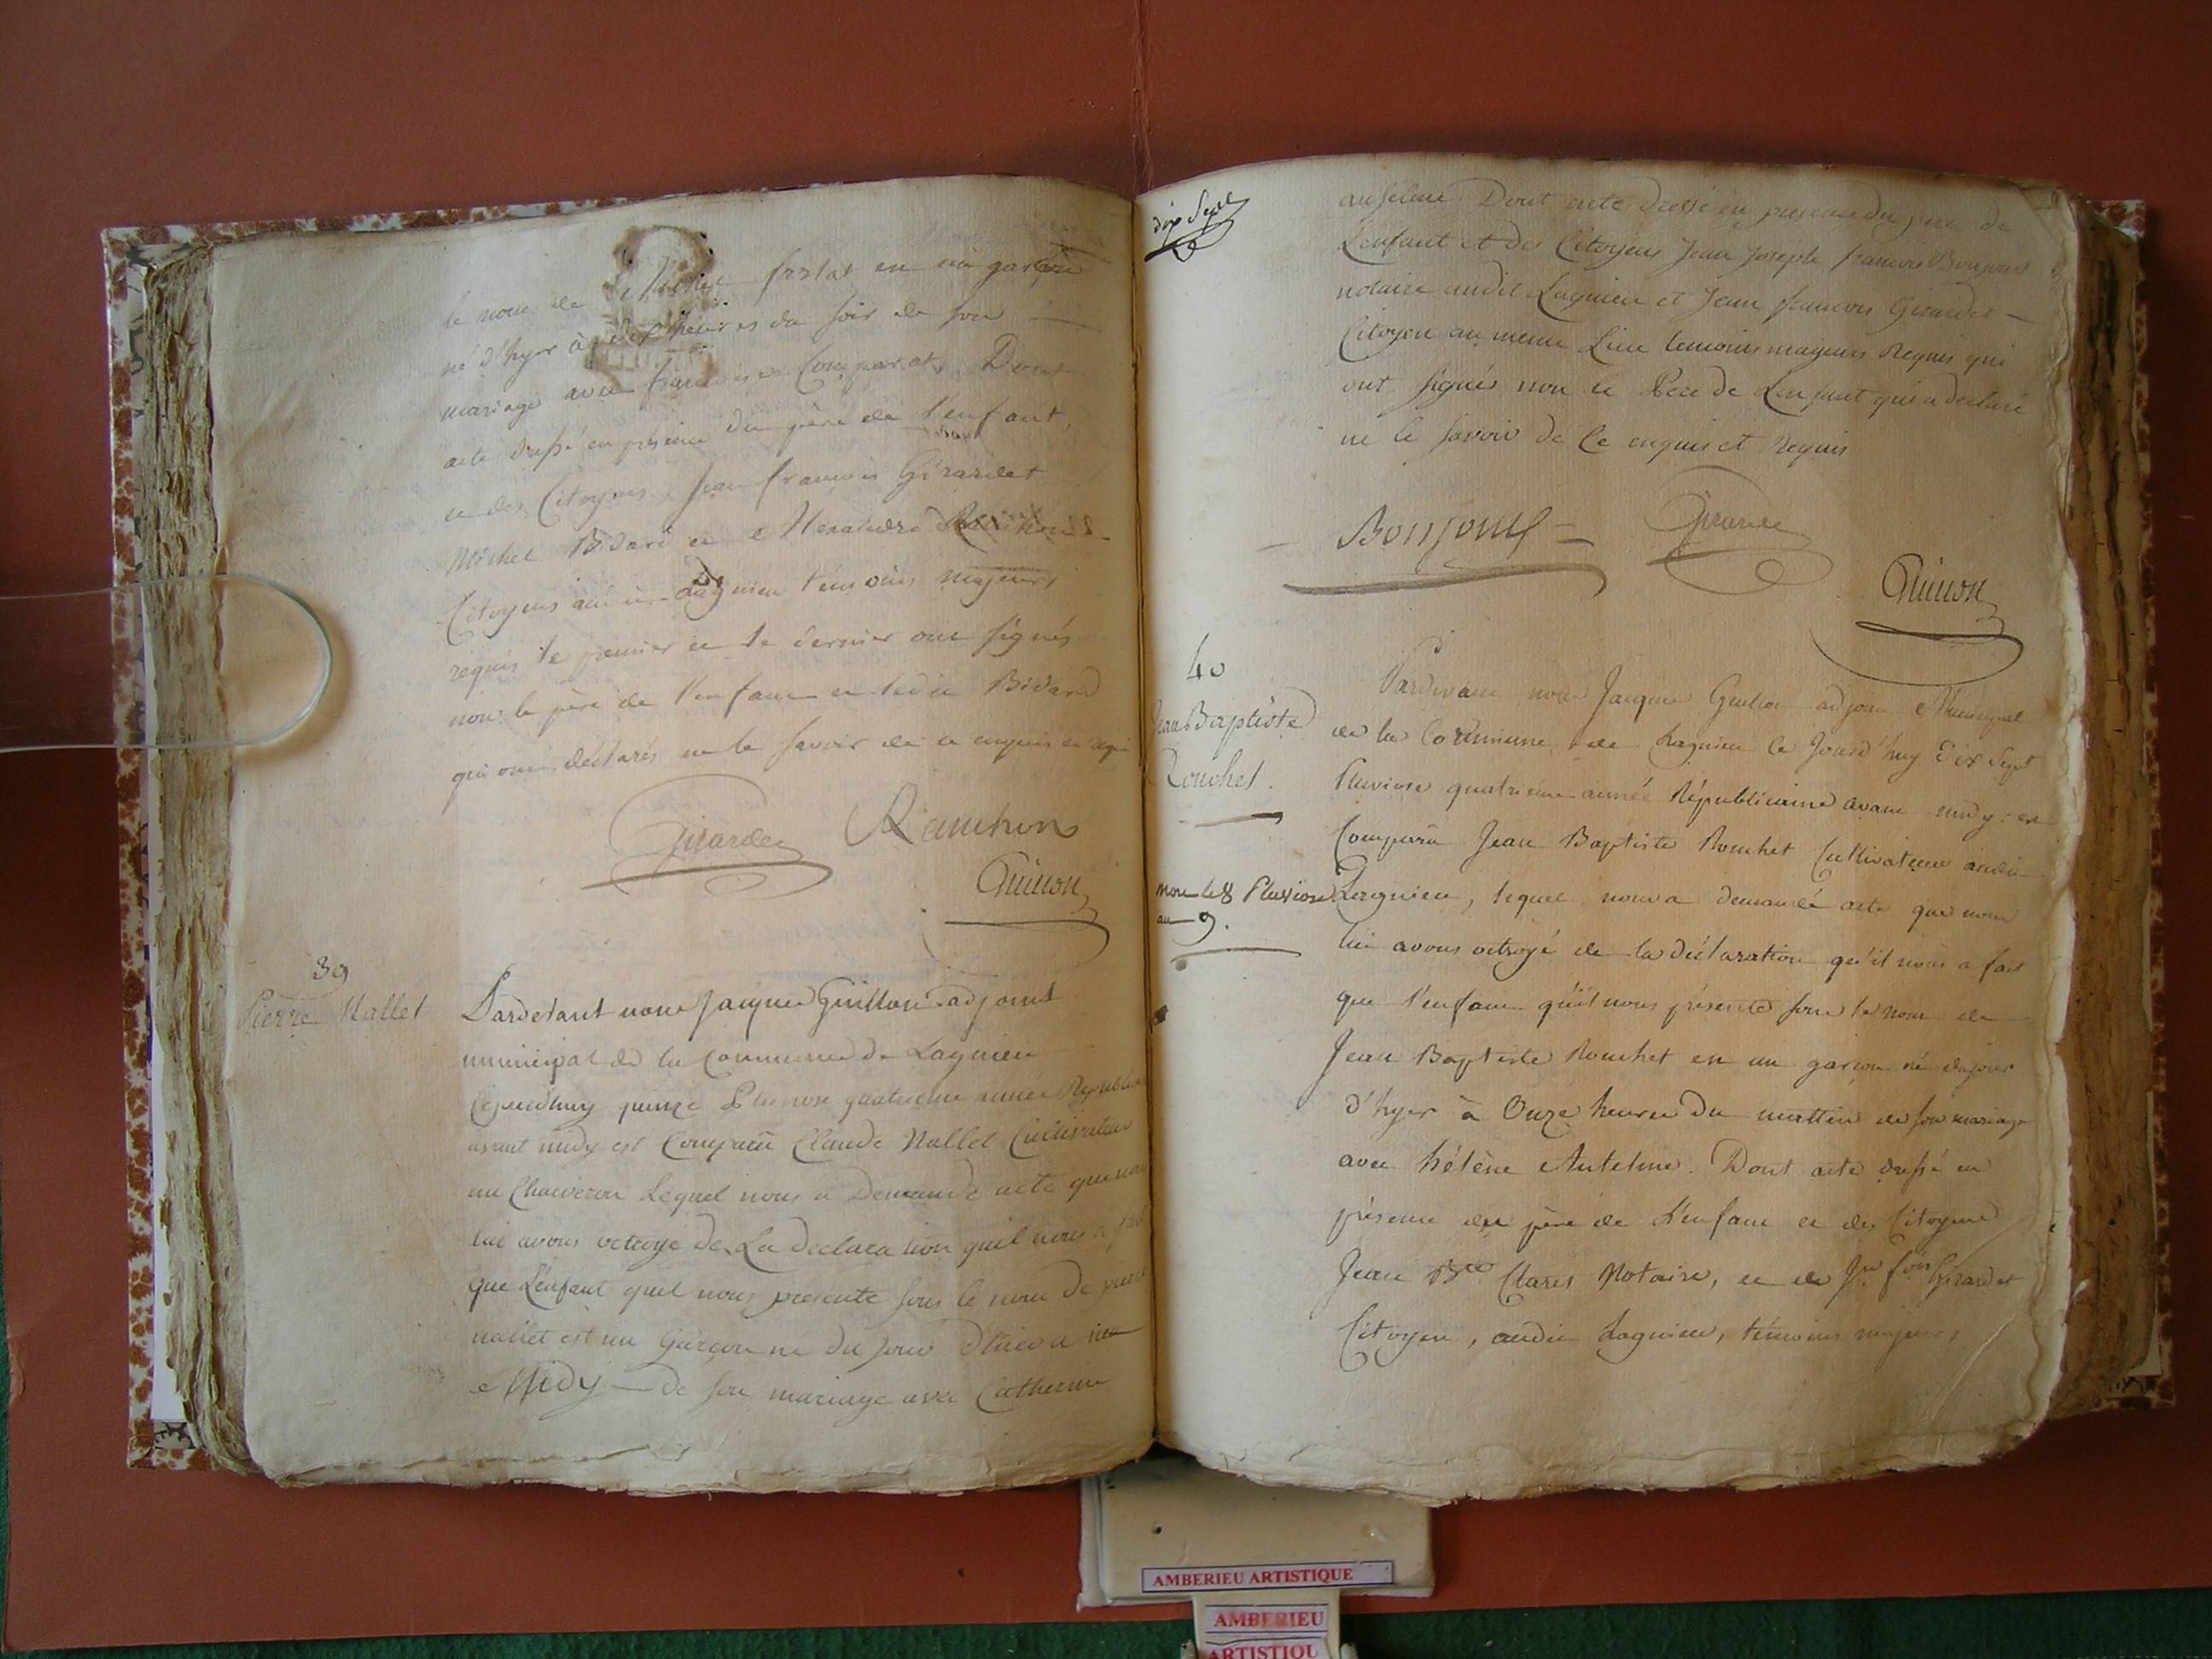 le nom de Michel fertat en un garçon
né d'hyer à six heures du soir de son
mariage avec françoise Comparat, Dont
acte dressé en présence du père de l'enfant,
et des Citoyens Jean françois Girardet
Michel Bidard et Alexandre Ranchon
Citoyens audit Lagnieu témoins majeurs
requis le premier et le dernier ont signés
non le père de l'enfant et ledit Bidard
qui ont déclarés ne le savoir de ce enquis et requis
Girardet Ranchon
Guillon
39
Pierre Nallet
Pardevant nous Jacques Guillon adjoint
municipal de la Commune de Lagnieu
Cejourdhuy quinze Pluviose quatrieme année Republicaine
avant midy est Comparu Claude Nallet Cultivateur
au Lequel nous a Demandé acte que nous
lui avons octroyé de La declaration quil nous a fait
que Lenfant quil nous presente sous le nom De pierre
nallet est un Garçon né du jour Dhier a
Midy — de son mariage avec Catherine
dix Sept
anselme Dont acte dressé en presence du pere de
Lenfant et des Citoyens Jean Joseph francois Bonjour
notaire audit Lagnieu et Jean francois Girardet —
Citoyen au meme Lieu temoins majeurs Requis qui
ont signés non le Pere de Lenfant qui a declaré
ne le savoir de Ce enquis et Requis
Bonjour Girardet
Guillon
40
Jean Baptiste
Rouchet.
mort le 8 Pluviose
an 9.
Pardevant nous Jacques Guillon adjoint Municipal
de la Commune de Lagnieu le Jourd'huy dix Sept
Pluviose quatrieme année Républicaine avant midy : est
Comparu Jean Baptiste Rouchet Cultivateur audit
Lagnieu, lequel nous a demandé acte que nous
lui avons octroyé de la déclaration qu'il nous a fait
que l'enfant qu'il nous présente sous le nom de
Jean Baptiste Rouchet est un garçon né du jour
d'hyer à Onze heures du mattin de son mariage
avec hélène Antelme. Dont acte dressé en
présence du père de l'enfant et des Citoyens
Jean Bte Clares Notaire, et de Jn fois Girardet
Citoyen, audit Lagnieu, témoins majeurs,
AMBERIEU ARTISTIQUE
AMBERIEU
ARTISTIQU